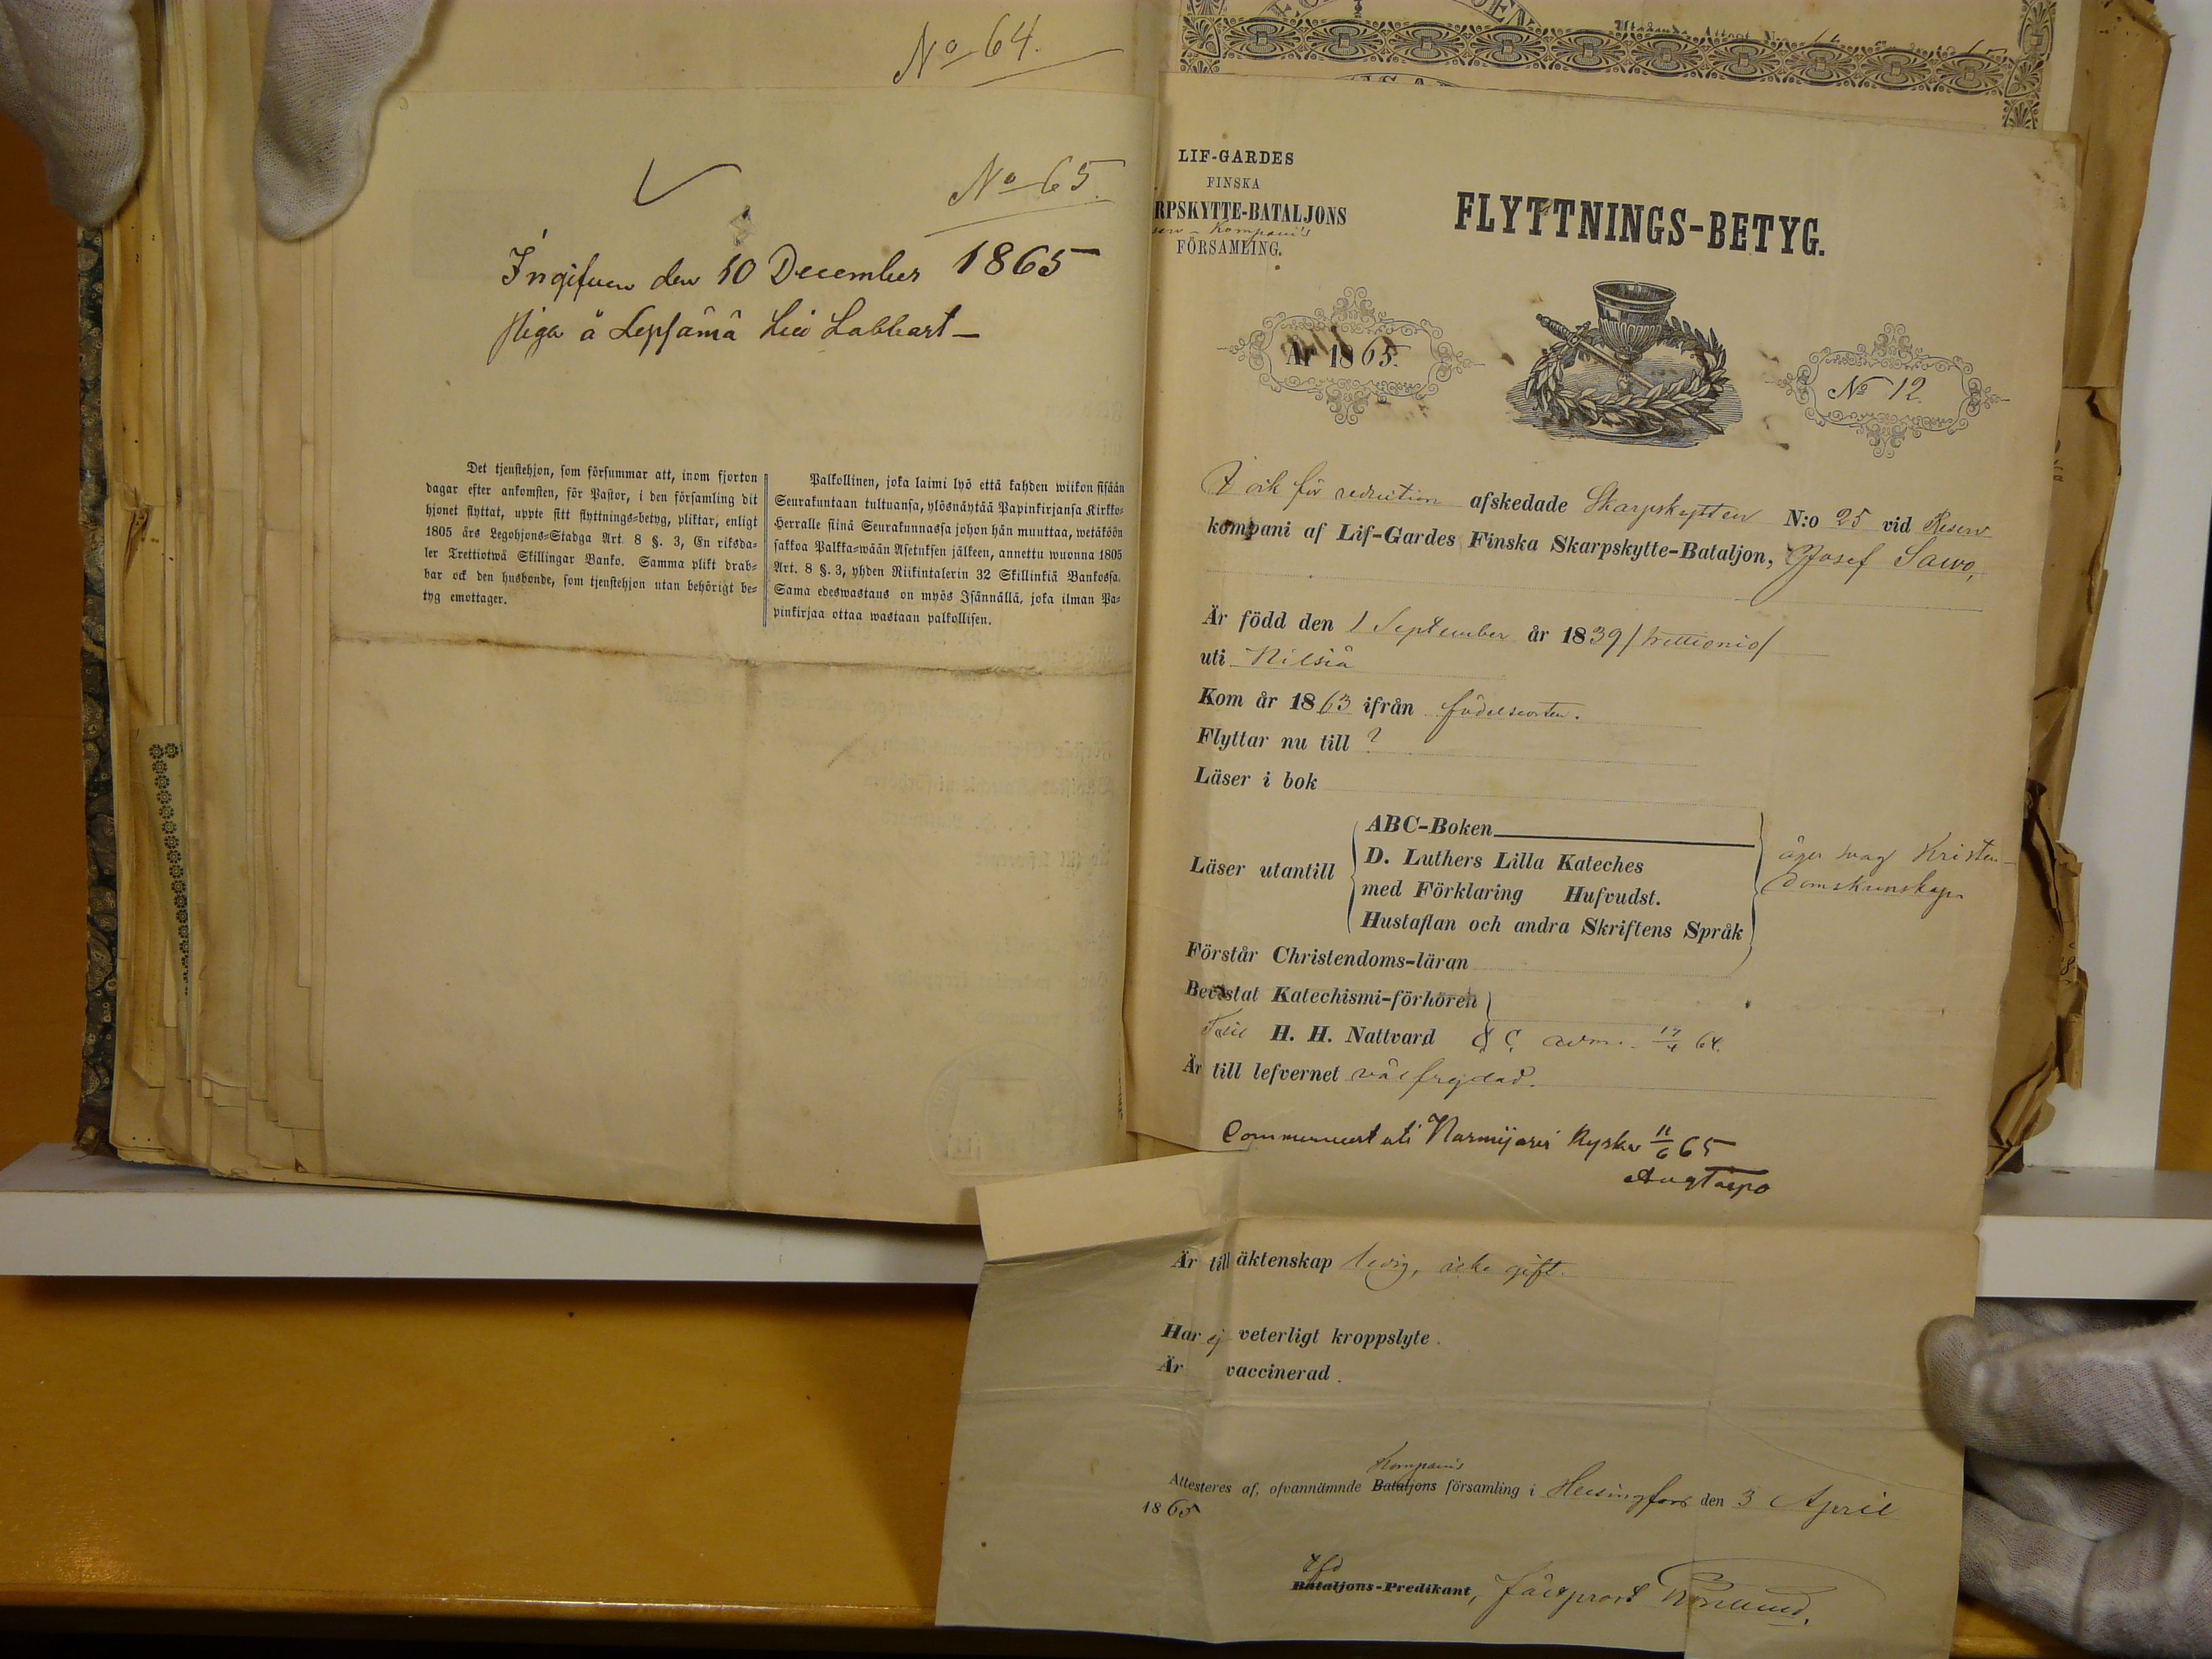 No 64.
No 65.
Ingifven den 10 December 1865
piga å Lepsämä
Det tjenstehjon, som försummar att, inom fjorton
dagar efter ankomsten, för Pastor, i den församling dit
hjonet flyttat, uppte sitt flyttnings-betyg, pliktar, enligt
1805 års Legohjons-Stadga Art. 8 §. 3, En riksda-
ler Trettiotwå Skillingar Banko. Samma plikt drab-
bar ock den husbonde, som tjenstehjon utan behörigt be-
tyg emottager.
Palkollinen, joka laimi lyö että kahden wiikon sisään
Seurakuntaan tultuansa, ylösnäytää Papinkirjansa Kirkko-
Herralle siinä Seurakunnassa johon hän muuttaa, wetäköön
sakkoa Palkka-wään Asetuksen jälkeen, annettu wuonna 1805
Art. 8 §. 3, yhden Riikintalerin 32 Skillinkiä Bankossa.
Sama edeswastaus on myös Isännällä, joka ilman Pa-
pinkirjaa ottaa wastaan palkollisen.
LIF-GARDES
FINSKA
RPSKYTTE-BATALJONS
Kompani's
FÖRSAMLING.
FLYTTNINGS-BETYG.
År 1865.
No 12.
för reduction afskedade Skarpskytten N:o 25 vid Reserv
kompani af Lif-Gardes Finska Skarpskytte-Bataljon, Josef Sawo,
Är född den 1 September år 1839 /trettionio/
uti Nilsiä
Kom år 1863 ifrån födelseorten.
Flyttar nu till ?
Läser i bok
Läser utantill
ABC-Boken
D. Luthers Lilla Kateches
med Förklaring Hufvudst.
Hustaflan och andra Skriftens Språk
äger svag Kristen-
domskunskap
Förstår Christendoms-läran
Bevistat Katechismi-förhören
H. H. Nattvard 17/4 64.
Är till lefvernet välfrejdad.
Communicerat uti Nurmijärvi Kyrka 11/6 65
Aug Taipo
Är till äktenskap ledig, icke gift.
Har ej veterligt kroppslyte.
Är vaccinerad.
Kompani's
Attesteres af, ofvannämnde Bataljons församling i Helsingfors den 3 April
1865
Bataljons-Predikant, Fältprost